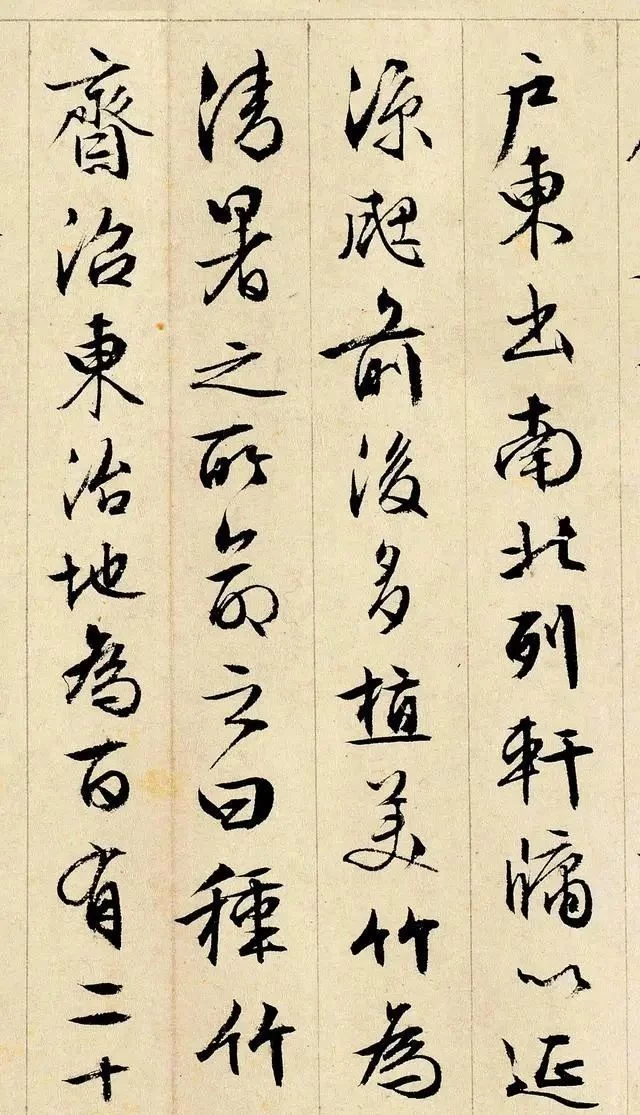 戶東出南北列軒牖以延
涼颸前後多植美竹為
清暑之所命之曰種竹
齋治東治地為百有二十